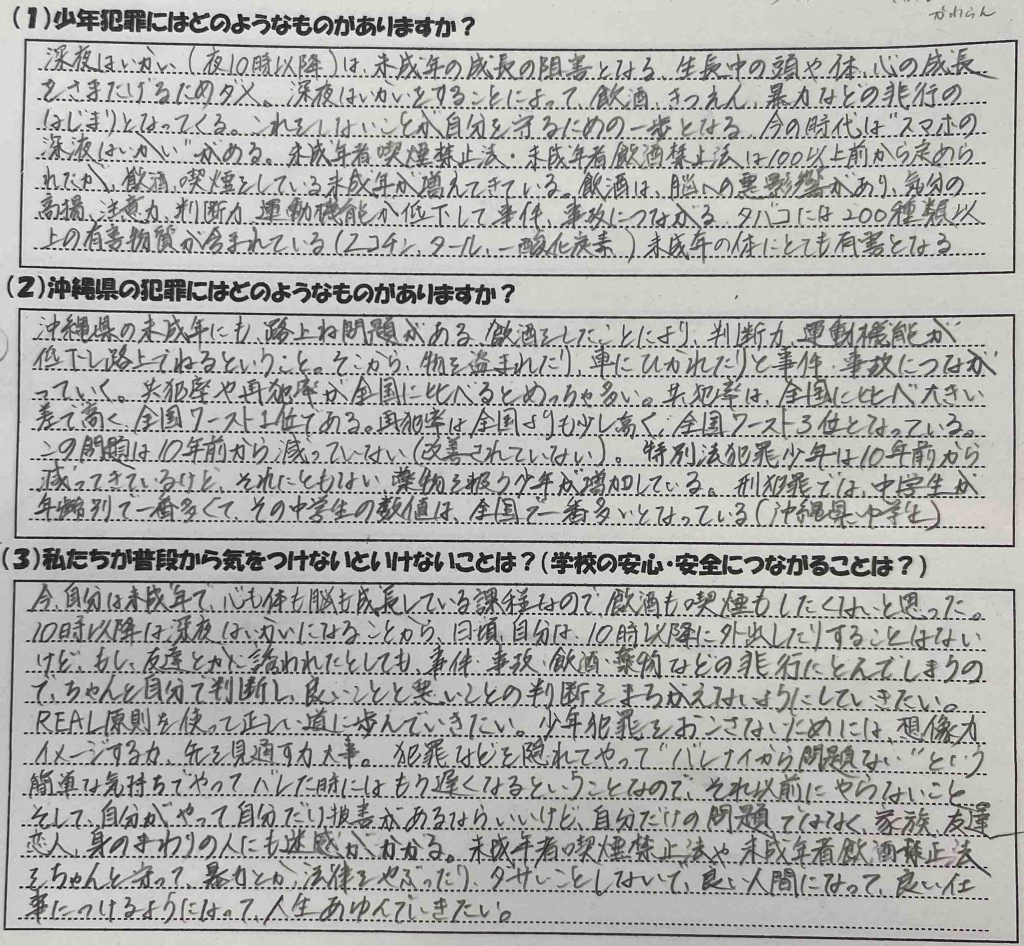 かれらん
(1)少年犯罪にはどのようなものがありますか？
深夜はいかい(夜10時以降)は、未成年の成長の阻害となる。生長中の頭や体、心の成長
をさまたげるためダメ。深夜はいかいをすることによって、飲酒、きつえん、暴力などの非行の
はじまりとなってくる。これをしないことが自分を守るための一歩となる。今の時代は"スマホの
深液はいかい"がある。未成年者喫煙禁止法・未成年者飲酒禁止法は100以上前から定めら
れたが、飲酒、喫煙をしている未成年が増えてきている。飲酒は、脳への悪影響があり、気分の
高揚、注意力、判断力、運動機能が低下して事件、事故につながる。タバコには200種類以
上の有害物質が含まれている(ニコチン、タール、一酸化炭素)未成年の体にとても有害となる
(2)沖縄県の犯罪にはどのようなものがありますか？
沖縄県の未成年にも、路上ね問題がある。飲酒をしたことにより、判断力、運動機能が
低下し路上でねるということ。そこから、物を盗まれたり、車にひかれたりと事件・事故につなが
っていく。共犯率や再犯率が全国に比べるとめっちゃ多い。共犯率は、全国に比べ大きい
差で高く、全国ワースト1位である。再犯率は全国よりも少し高く、全国ワースト3位となっている。
この問題は10年前から減っていない(改善されていない)。特別法犯罪少年は10年前から
減ってきているけど、それにともない薬物を扱う少年が増加している。刑犯罪では、中学生が
年齢別で一番多くて、その中学生の数値は、全国で一番多いとなっている(沖縄県い中学生)
(3)私たちが普段から気をつけないといけないことは？(学校の安心・安全につながることは？)
今、自分は未成年で、心も体も脳も成長している課程なので、飲酒も喫煙もしたくないと思った。
10時以降は深夜はいかいになることから、日頃、自分は、10時以降に外出したりすることはない
けど、もし、友達とかに誘われたとしても、事件・事故・飲酒・薬物などの非行にとんでしまうの
で、ちゃんと自分で判断し、良いことと悪いことの判断をまちがえないようにしていきたい。
REAL原則を使って正しい道に歩んでいきたい。少年犯罪をおこさないためには、想像力
イメージする力、先を見通す力大事。犯罪などを隠れてやって"バレナイから問題ない"という
簡単な気持ちでやって、バレた時にはもう遅くなるということなので、それ以前にやらないこと
そして、自分がやって自分だけ被害があるならいいけど、自分だけの問題ではなく、家族、友達
恋人、身のまわりの人にも迷惑がかかる。未成年者喫煙禁止法や未成年者飲酒禁止法
をちゃんと守って、暴力とか、法律をやぶったり、ダサいことしないで、良い人間になって、良い仕
事につけるようになって、人生あゆんでいきたい。